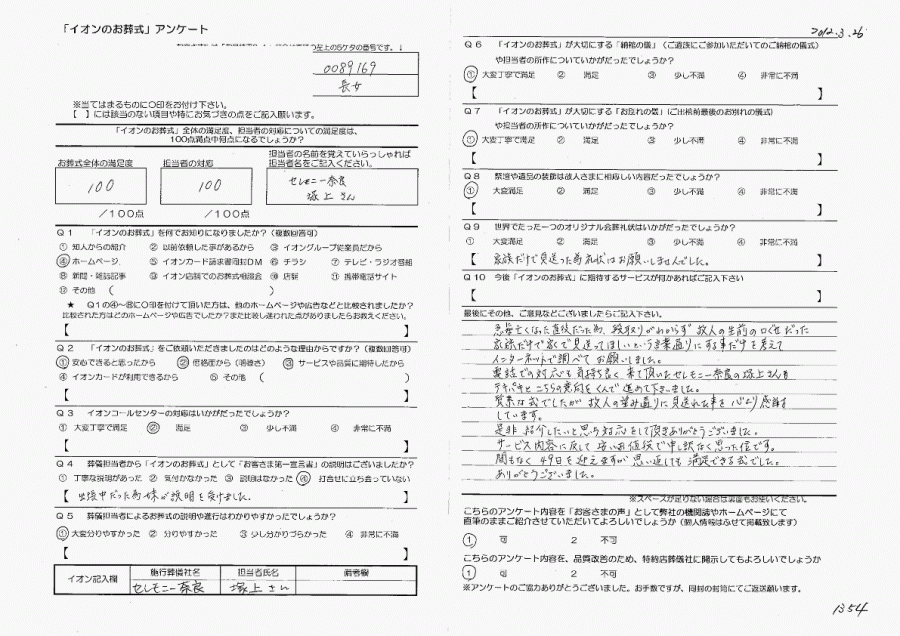 「イオンのお葬式」アンケート
の左上の5ケタの番号です。↓
0089169
長女
※当てはまるものに○印をお付け下さい。
【 】には該当のない項目や特にお気づきの点をご記入願います。
「イオンのお葬式」全体の満足度、担当者の対応についての満足度は、
100点満点中何点になるでしょうか?
お葬式全体の満足度
担当者の対応
担当者の名前を覚えていらっしゃれば
担当者名をご記入ください。
100
100
セレモニー奈良
塚上さん
/100点
/100点
Q1 「イオンのお葬式」を何でお知りになりましたか?(複数回答可)
① 知人からの紹介 ② 以前依頼した事があるから ③ イオングループ従業員だから
④ ホームページ ⑤ イオンカード請求書同封DM ⑥ チラシ ⑦ テレビ・ラジオ番組
⑧ 新聞・雑誌記事 ⑨ イオン店頭でのお葬式相談会 ⑩ 店頭 ⑪ 携帯電話サイト
⑫ その他 ( )
★ Q1の④～⑫に○印を付けて頂いた方は、他のホームページや広告などと比較されましたか?
比較された方はどのホームページや広告でしたか?また比較し迷われた点がありましたらお教えください。
【 】
Q2 「イオンのお葬式」をご依頼いただきましたのはどのような理由からですか?(複数回答可)
① 安心できると思ったから ② 価格面から(明瞭さ) ③ サービスや品質に期待したから
④ イオンカードが利用できるから ⑤ その他 ( )
【 】
Q3 イオンコールセンターの対応はいかがだったでしょうか?
① 大変丁寧で満足 ② 満足 ③ 少し不満 ④ 非常に不満
【 】
Q4 葬儀担当者から「イオンのお葬式」として「お客さま第一宣言書」の説明はございましたか?
① 丁寧な説明があった ② 気付かなかった ③ 説明はなかった ④ 打合せに立ち会っていない
【 出張中だった為 妹が説明を受けました。 】
Q5 葬儀担当者によるお葬式の説明や進行はわかりやすかったでしょうか?
① 大変分りやすかった ② 分りやすかった ③ 少し分かりづらかった ④ 非常に不満
【 】
イオン記入欄
施行葬儀社名
担当者氏名
備考欄
セレモニー奈良
塚上さん
2012.3.26
Q6 「イオンのお葬式」が大切にする「納棺の儀」(ご遺族にご参加いただいてのご納棺の儀式)
や担当者の所作についていかがだったでしょうか?
① 大変丁寧で満足 ② 満足 ③ 少し不満 ④ 非常に不満
【 】
Q7 「イオンのお葬式」が大切にする「お別れの儀」(ご出棺前最後のお別れの儀式)
や担当者の所作についていかがだったでしょうか?
① 大変丁寧で満足 ② 満足 ③ 少し不満 ④ 非常に不満
【 】
Q8 祭壇や遺品の装飾は故人さまに相応しい内容だったでしょうか?
① 大変満足 ② 満足 ③ 少し不満 ④ 非常に不満
【 】
Q9 世界でたった一つのオリジナル会葬礼状はいかがだったでしょうか?
① 大変満足 ② 満足 ③ 少し不満 ④ 非常に不満
【 家族だけで見送った為 礼状はお願いしませんでした。 】
Q10 今後「イオンのお葬式」に期待するサービスが何かあればご記入下さい
【 】
最後にその他、ご意見などございましたらご記入下さい。
亡くなった直後だった為、段取りがわからず 故人の生前の口ぐせだった
家族だけで家で見送ってほしいという言葉通りにする事だけを考えて
インターネットで調べて お願いしました。
電話での対応も気持ち良く 来て頂いたセレモニー奈良の塚上さんも
テキパキとこちらの意向をくんで進めて下さいました。
質素な式でしたが 故人の望み通りに見送れた事を 心より感謝
しています。
是非 紹介したいと思う対応をして頂きありがとうございました。
サービス内容に反して 安いお値段で申し訳なく思った位です。
間もなく 49日を迎えますが 思い返しても 満足できる式でした。
ありがとうございました。
※スペースが足りない場合は裏面もお使いください。
こちらのアンケート内容を「お客さまの声」として弊社の機関誌やホームページにて
直筆のままご紹介させていただいてよろしいでしょうか(個人情報はふせて掲載致します)
1 可 2 不可
こちらのアンケート内容を、品質改善のため、特約店葬儀社に開示してもよろしいでしょうか
1 可 2 不可
※アンケートのご協力ありがとうございました。お手数ですが、同封の封筒にてご返送願います。
1354